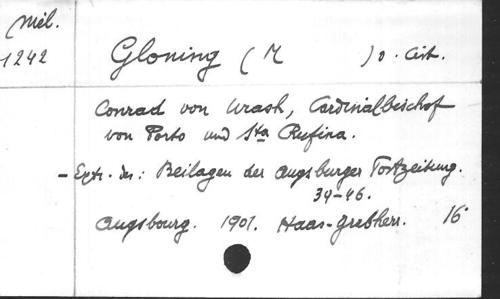 Mél.
1242
Gloning (M )o. Cist.
Conrad von Urach, Cardinalbischof
von Porto und Sta Rufina.
- Extr. des: Beilagen der Augsburger Postzeitung.
34-46.
Augsbourg. 1901. Haas-Grabherr. 16°